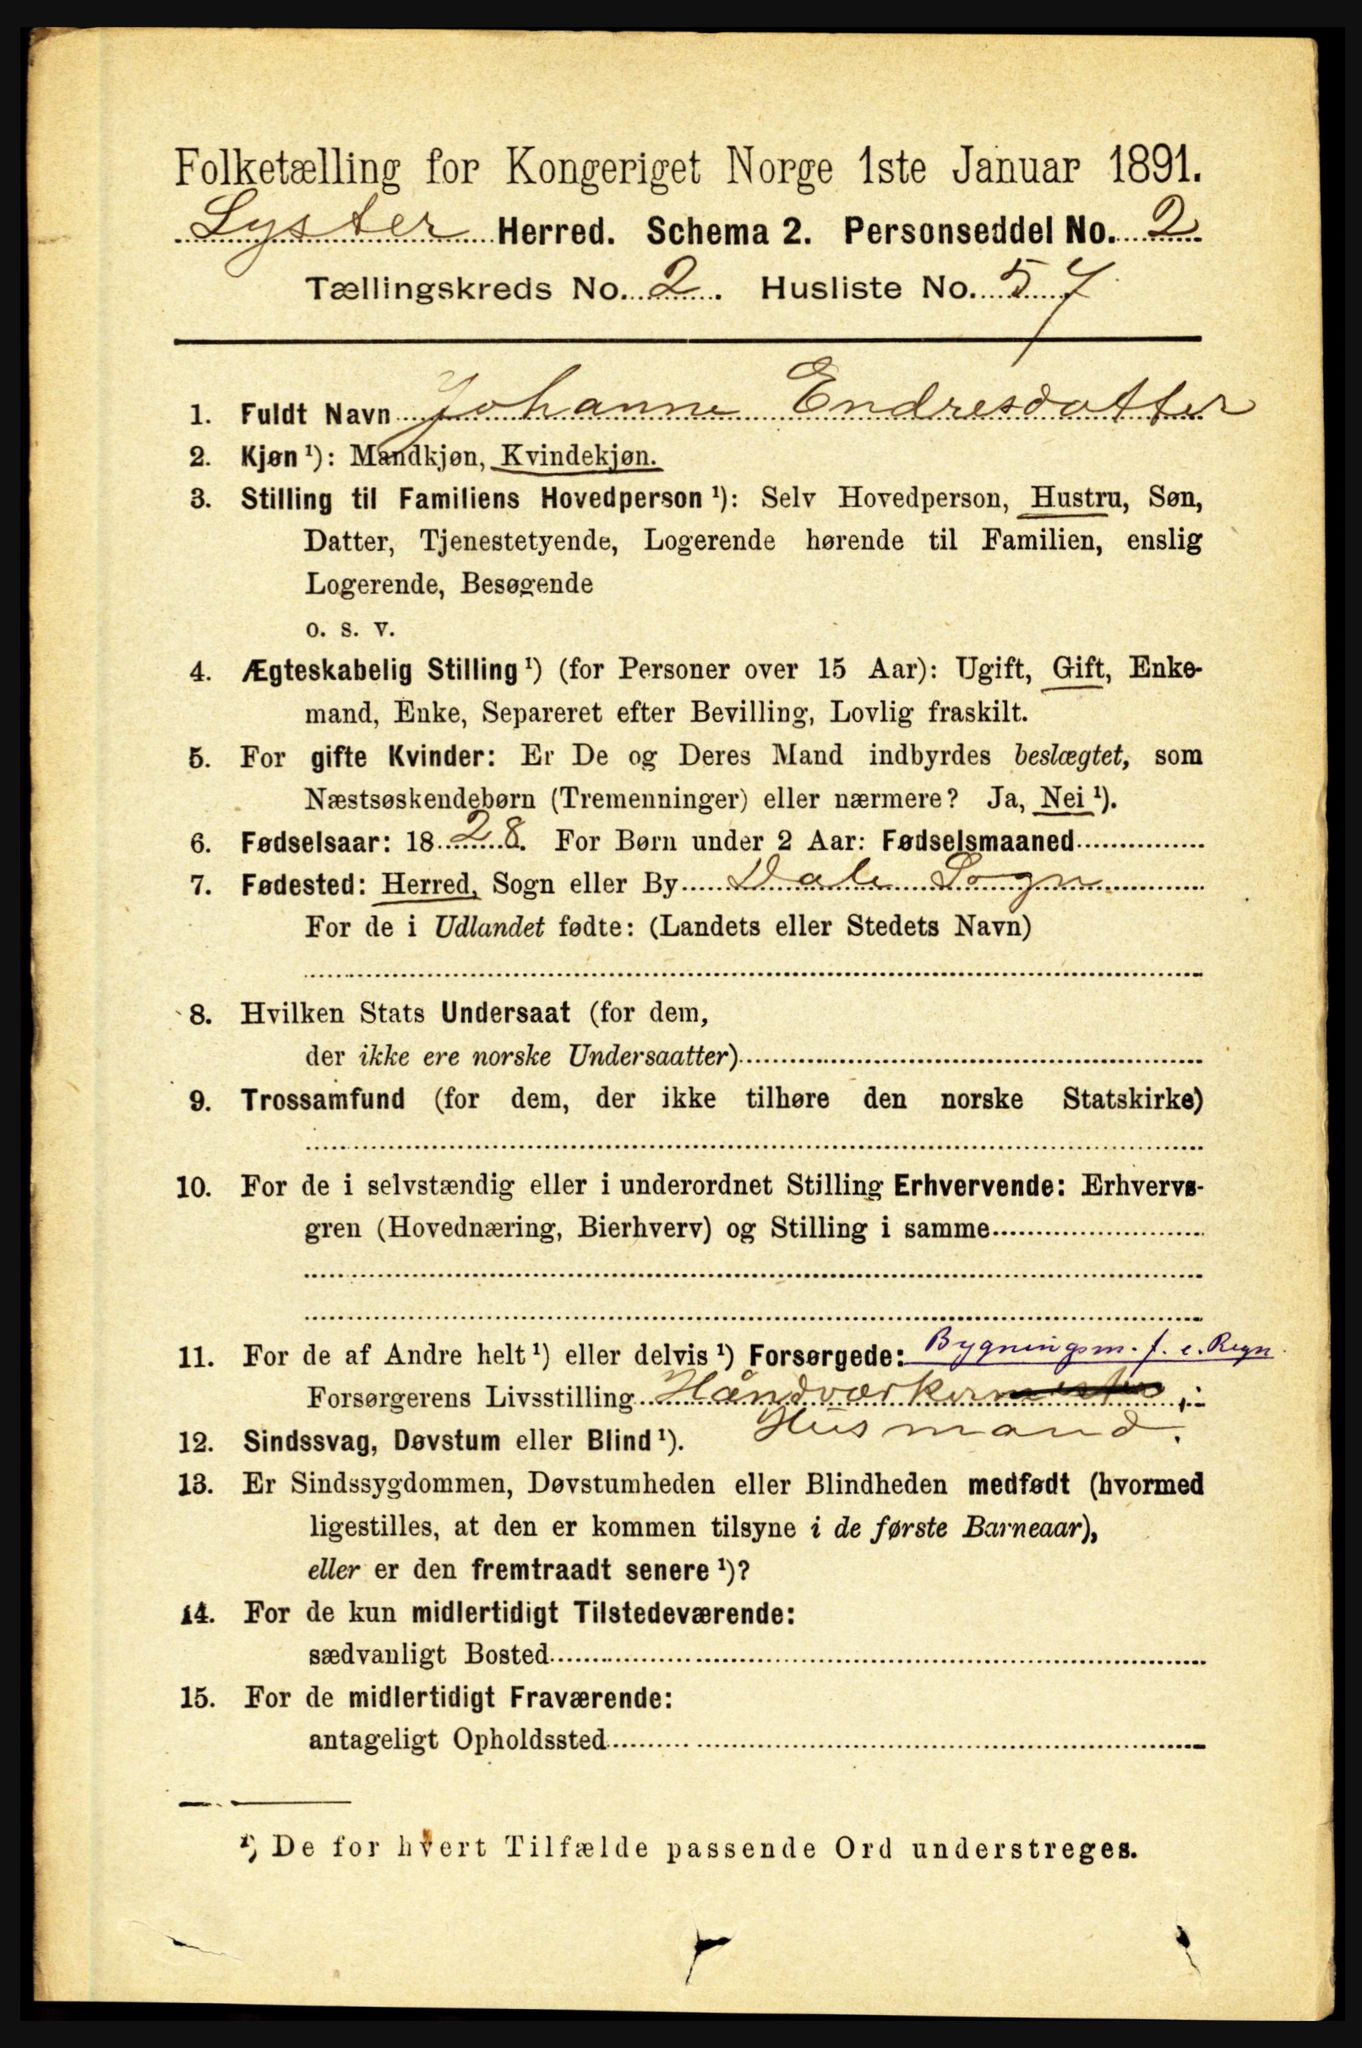 Folketælling for Kongeriget Norge 1ste Januar 1891.
Lyster Herred. Schema 2. Personseddel No. 2
Tællingskreds No. 2. Husliste No. 57
1. Fuldt Navn Johanne Endresdatter
2. Kjøn ¹): Mandkjøn, Kvindekjøn.
3. Stilling til Familiens Hovedperson ¹): Selv Hovedperson, Hustru, Søn,
Datter, Tjenestetyende, Logerende hørende til Familien, enslig
Logerende, Besøgende
o. s. v.
4. Ægteskabelig Stilling ¹) (for Personer over 15 Aar): Ugift, Gift, Enke-
mand, Enke, Separeret efter Bevilling, Lovlig fraskilt.
5. For gifte Kvinder: Er De og Deres Mand indbyrdes beslægtet, som
Næstsøskendebørn (Tremenninger) eller nærmere? Ja, Nei ¹).
6. Fødselsaar: 1828. For Børn under 2 Aar: Fødselsmaaned
7. Fødested: Herred, Sogn eller By Dale Sogn
For de i Udlandet fødte: (Landets eller Stedets Navn)
8. Hvilken Stats Undersaat (for dem,
der ikke ere norske Undersaatter)
9. Trossamfund (for dem, der ikke tilhøre den norske Statskirke)
10. For de i selvstændig eller i underordnet Stilling Erhvervende: Erhvervs-
gren (Hovednæring, Bierhverv) og Stilling i samme
11. For de af Andre helt ¹) eller delvis ¹) Forsørgede: Bygningsm. f. e. Regn.
Forsørgerens Livsstilling Håndværkermester,
Husmand.
12. Sindssvag, Døvstum eller Blind ¹).
13. Er Sindssygdommen, Døvstumheden eller Blindheden medfødt (hvormed
ligestilles, at den er kommen tilsyne i de første Barneaar),
eller er den fremtraadt senere ¹)?
14. For de kun midlertidigt Tilstedeværende:
sædvanligt Bosted
15. For de midlertidigt Fraværende:
antageligt Opholdssted
¹) De for hvert Tilfælde passende Ord understreges.